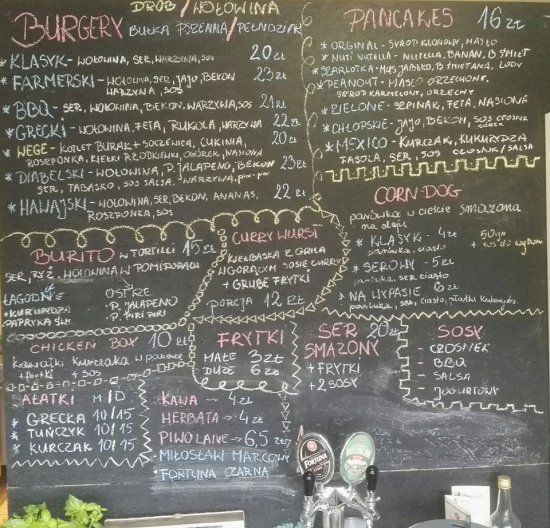 DRÓB / WOŁOWINA
BURGERY BUŁKA PSZENNA/PEŁNOZIAR
* KLASYK - WOŁOWINA, SER, WARZYWA, SOS 20 zł
* FARMERSKI - WOŁOWINA, SER, JAJO, BEKON 23 zł
WARZYWA, SOS
* BBQ - SER, WOŁOWINA, BEKON, WARZYWA, SOS 21 zł
* GRECKI - WOŁOWINA, FETA, RUKOLA, WARZYWA 22 zł
* WEGE - KOTLET BURAK + SOCZEWICA, CUKINIA, 20 zł
ROSZPONKA, KIEŁKI RZODKIEWKI, OGÓREK, NASIONA
* DIABELSKI - WOŁOWINA, P. JALAPENO, BEKON 23 zł
SER, TABASKO, SOS SALSA, WARZYWA
* HAWAJSKI - WOŁOWINA, SER, BEKON, ANANAS, 22 zł
ROSZPONKA, SOS
PANCAKES 16 zł
* ORGINAL - SYROP KLONOWY, MASŁO
* NUTI NUTELLA - NUTELLA, BANAN, B. ŚMIET
* SZARLOTKA - MUS JABŁKO, B. ŚMIETANA, LODY
* PEANOUT - MASŁO ORZECHOWE,
SYROP KARMELOWE, ORZECHY
* ZIELONE - SZPINAK, FETA, NASIONA
* CHŁOPSKIE - JAJO, BEKON, SOS CZOSNK
* MEXICO - KURCZAK, KUKURYDZA
FASOLA, SER, SOS CZOSNEK / SALSA
CORN-DOG
parówka w cieście smażona
na oleju
* KLASYK - 4 zł
parówka, ciasto
+ sos do wyboru
* SEROWY - 5 zł
parówka, ser, ciasto
* NA WYPASIE 6 zł
parówka, ser, ciasto, płatki kukurydz
BURITO W TORTILLI 15 zł
SER, RYŻ, WOŁOWINA W POMIDORACH
ŁAGODNE
* KUKURYDZA
PAPRYKA
OSTRE
* P. JALAPENO
* P. PIRI PIRI
CURRY WURST
KIEŁBASKA Z GRILA
W GORĄCYM SOSIE CURRY
+ GRUBE FRYTKI
porcja 12 zł
CHICKEN BOX 10 zł
Kawałki kurczaka w panierce
+ frytki + SOS
FRYTKI
MAŁE 3 zł
DUŻE 6 zł
SER 20 zł
SMAŻONY
+ FRYTKI
+ 2 SOSY
SOSY
- CZOSNEK
- BBQ
- SALSA
- JOGURTOWY
AŁATKI M/D
* GRECKA 10/15
* TUŃCZYK 10/15
* KURCZAK 10/15
KAWA - 4 zł
HERBATA - 4 zł
PIWO LANE - 6,5 zł
* MIŁOSŁAW MARCOWY
* FORTUNA CZARNA
FORTUNA